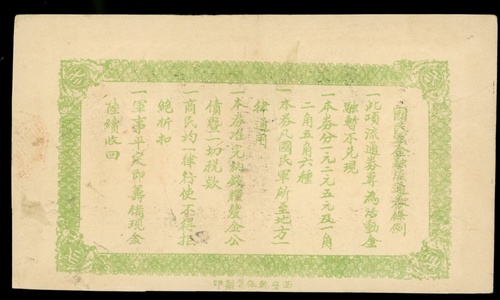 國民軍金融流通券條例
一此項流通券專為活動金
融暫不兌現
一本券分一元二元五元及一角
二角五角六種
一本券凡國民軍所至地方一
律通用
一本券准完納錢糧釐金公
債暨一切稅款
一商民均一律行使不得拒
絕折扣
一軍事平定即籌備現金
陸續收回